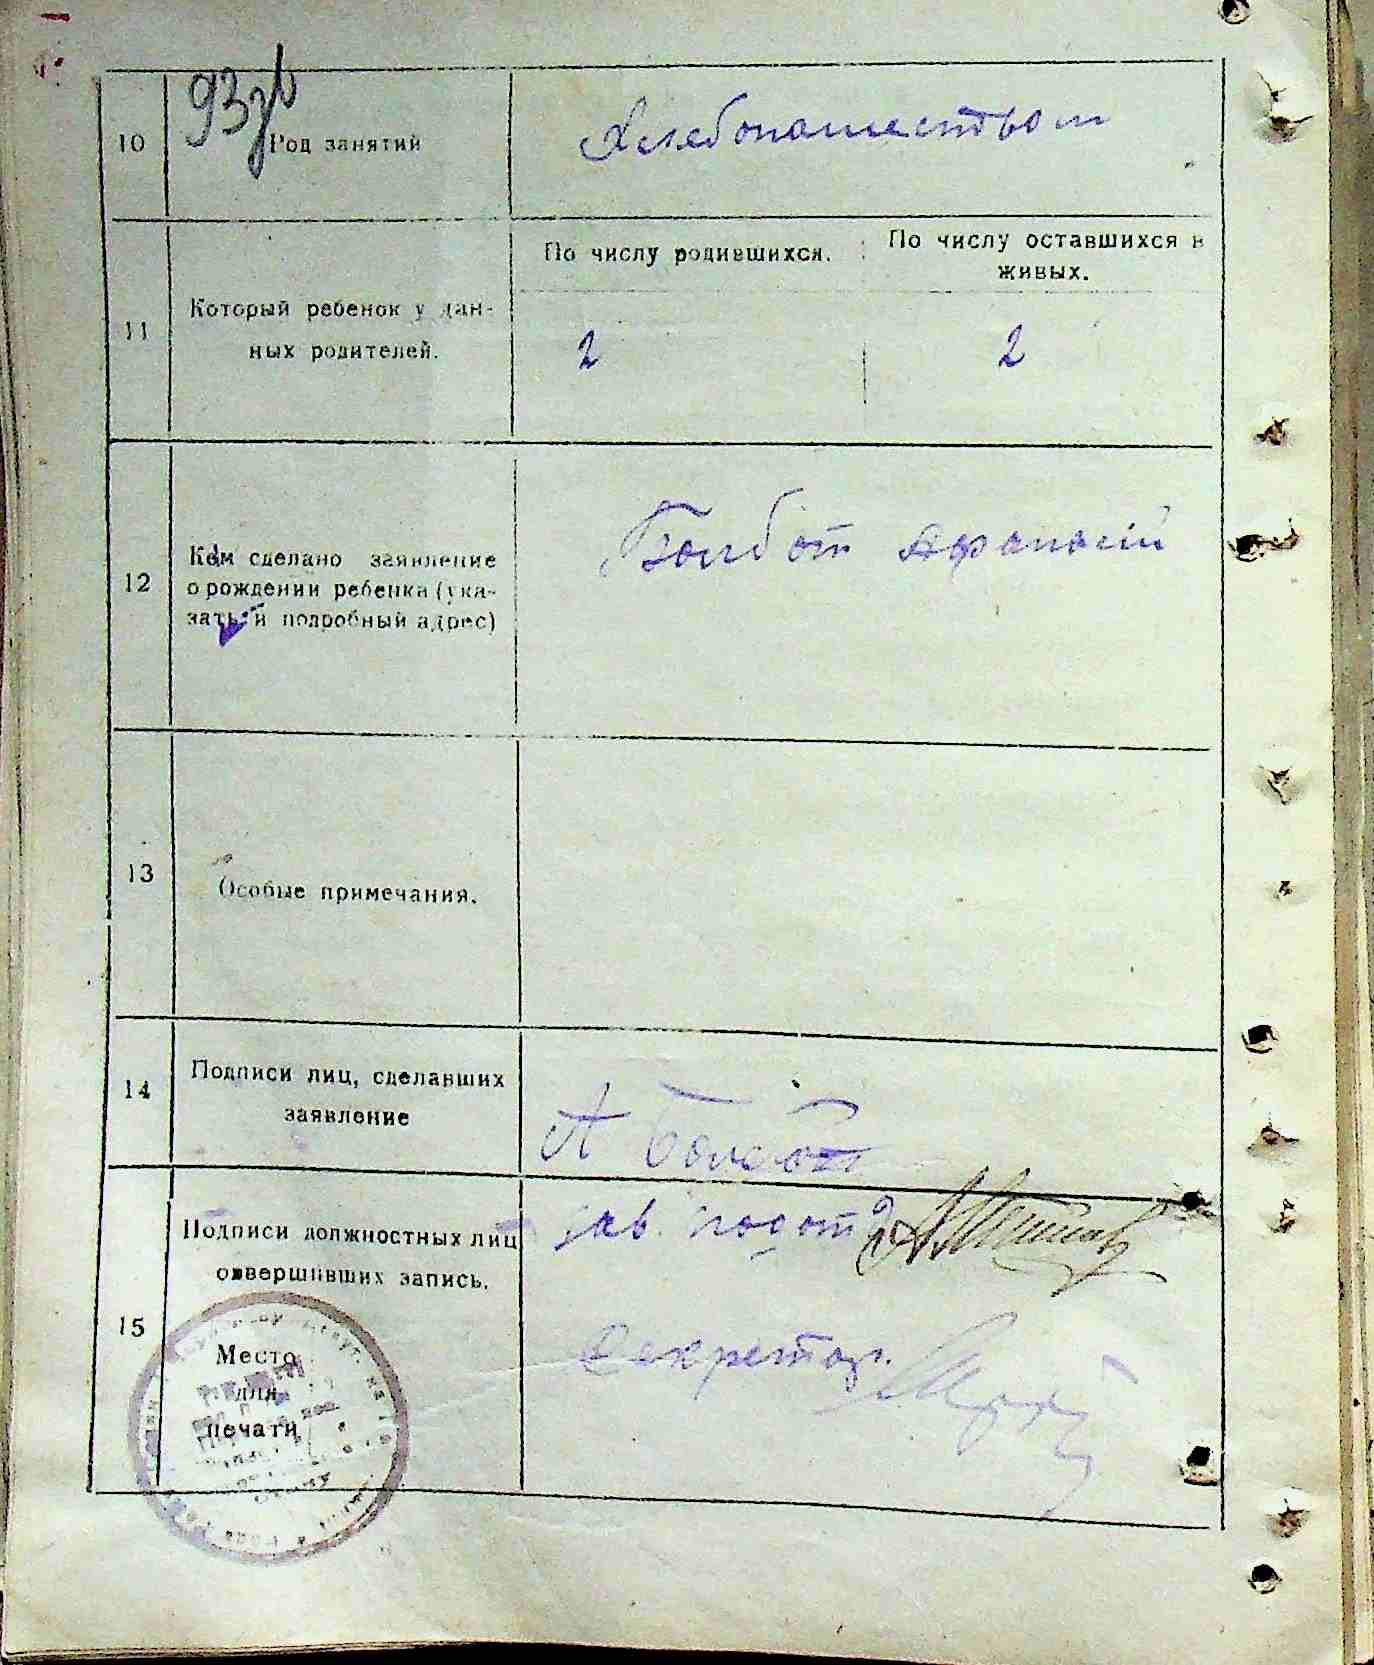 93 зв
10 Род занятий Хлебопашеством
По числу родившихся. По числу оставшихся в
живых.
11 Который ребенок у дан-
ных родителей.
2 2
12 Кем сделано заявление
о рождении ребенка (ука-
зать и подробный адрес)
Болбот Афанасий
13 Особые примечания.
14 Подписи лиц, сделавших
заявление
А Болбот
15 Подписи должностных лиц
совершивших запись.
зав. подотд
Секретар.
Место
для
печати